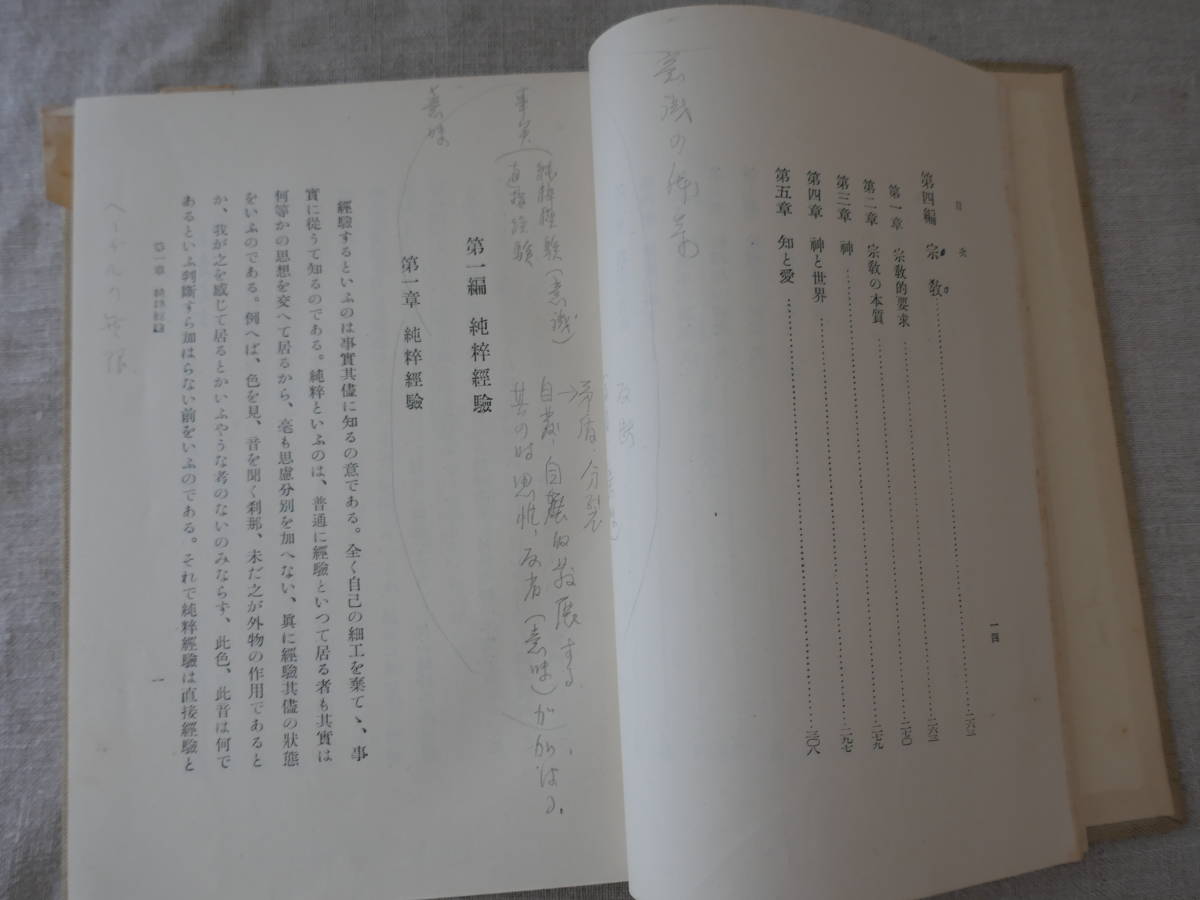 目次
第四編 宗教……二六三
第一章 宗教的要求……二六三
第二章 宗教の本質……二七〇
第三章 神……二七九
第四章 神と世界……二九七
第五章 知と愛……三〇八
一四
意識の
矛盾、分裂
自発、自展的発展する
其の時思惟、反省(意味)が加はる。
純粋経験(意識)
直接経験
事実
意味
第一編 純粹經驗
第一章 純粹經驗
經驗するといふのは事實其儘に知るの意である。全く自己の細工を棄てゝ、事
實に從うて知るのである。純粹といふのは、普通に經驗といつて居る者も其實は
何等かの思想を交へて居るから、毫も思慮分別を加へない、眞に經驗其儘の狀態
をいふのである。例へば、色を見、音を聞く刹那、未だ之が外物の作用であると
か、我が之を感じて居るとかいふやうな考のないのみならず、此色、此音は何で
あるといふ判斷すら加はらない前をいふのである。それで純粹經驗は直接經驗と
第一章 純粹經驗
一
ヘーゲルの無限